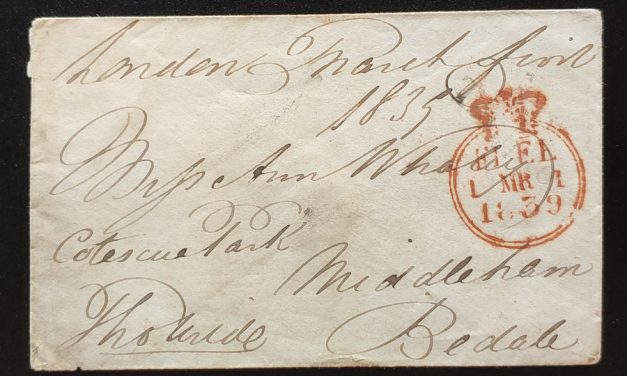 London March first
1839
Miss Ann
FREE
1 MR 1
1839
Cotescue Park
Middleham
Bedale